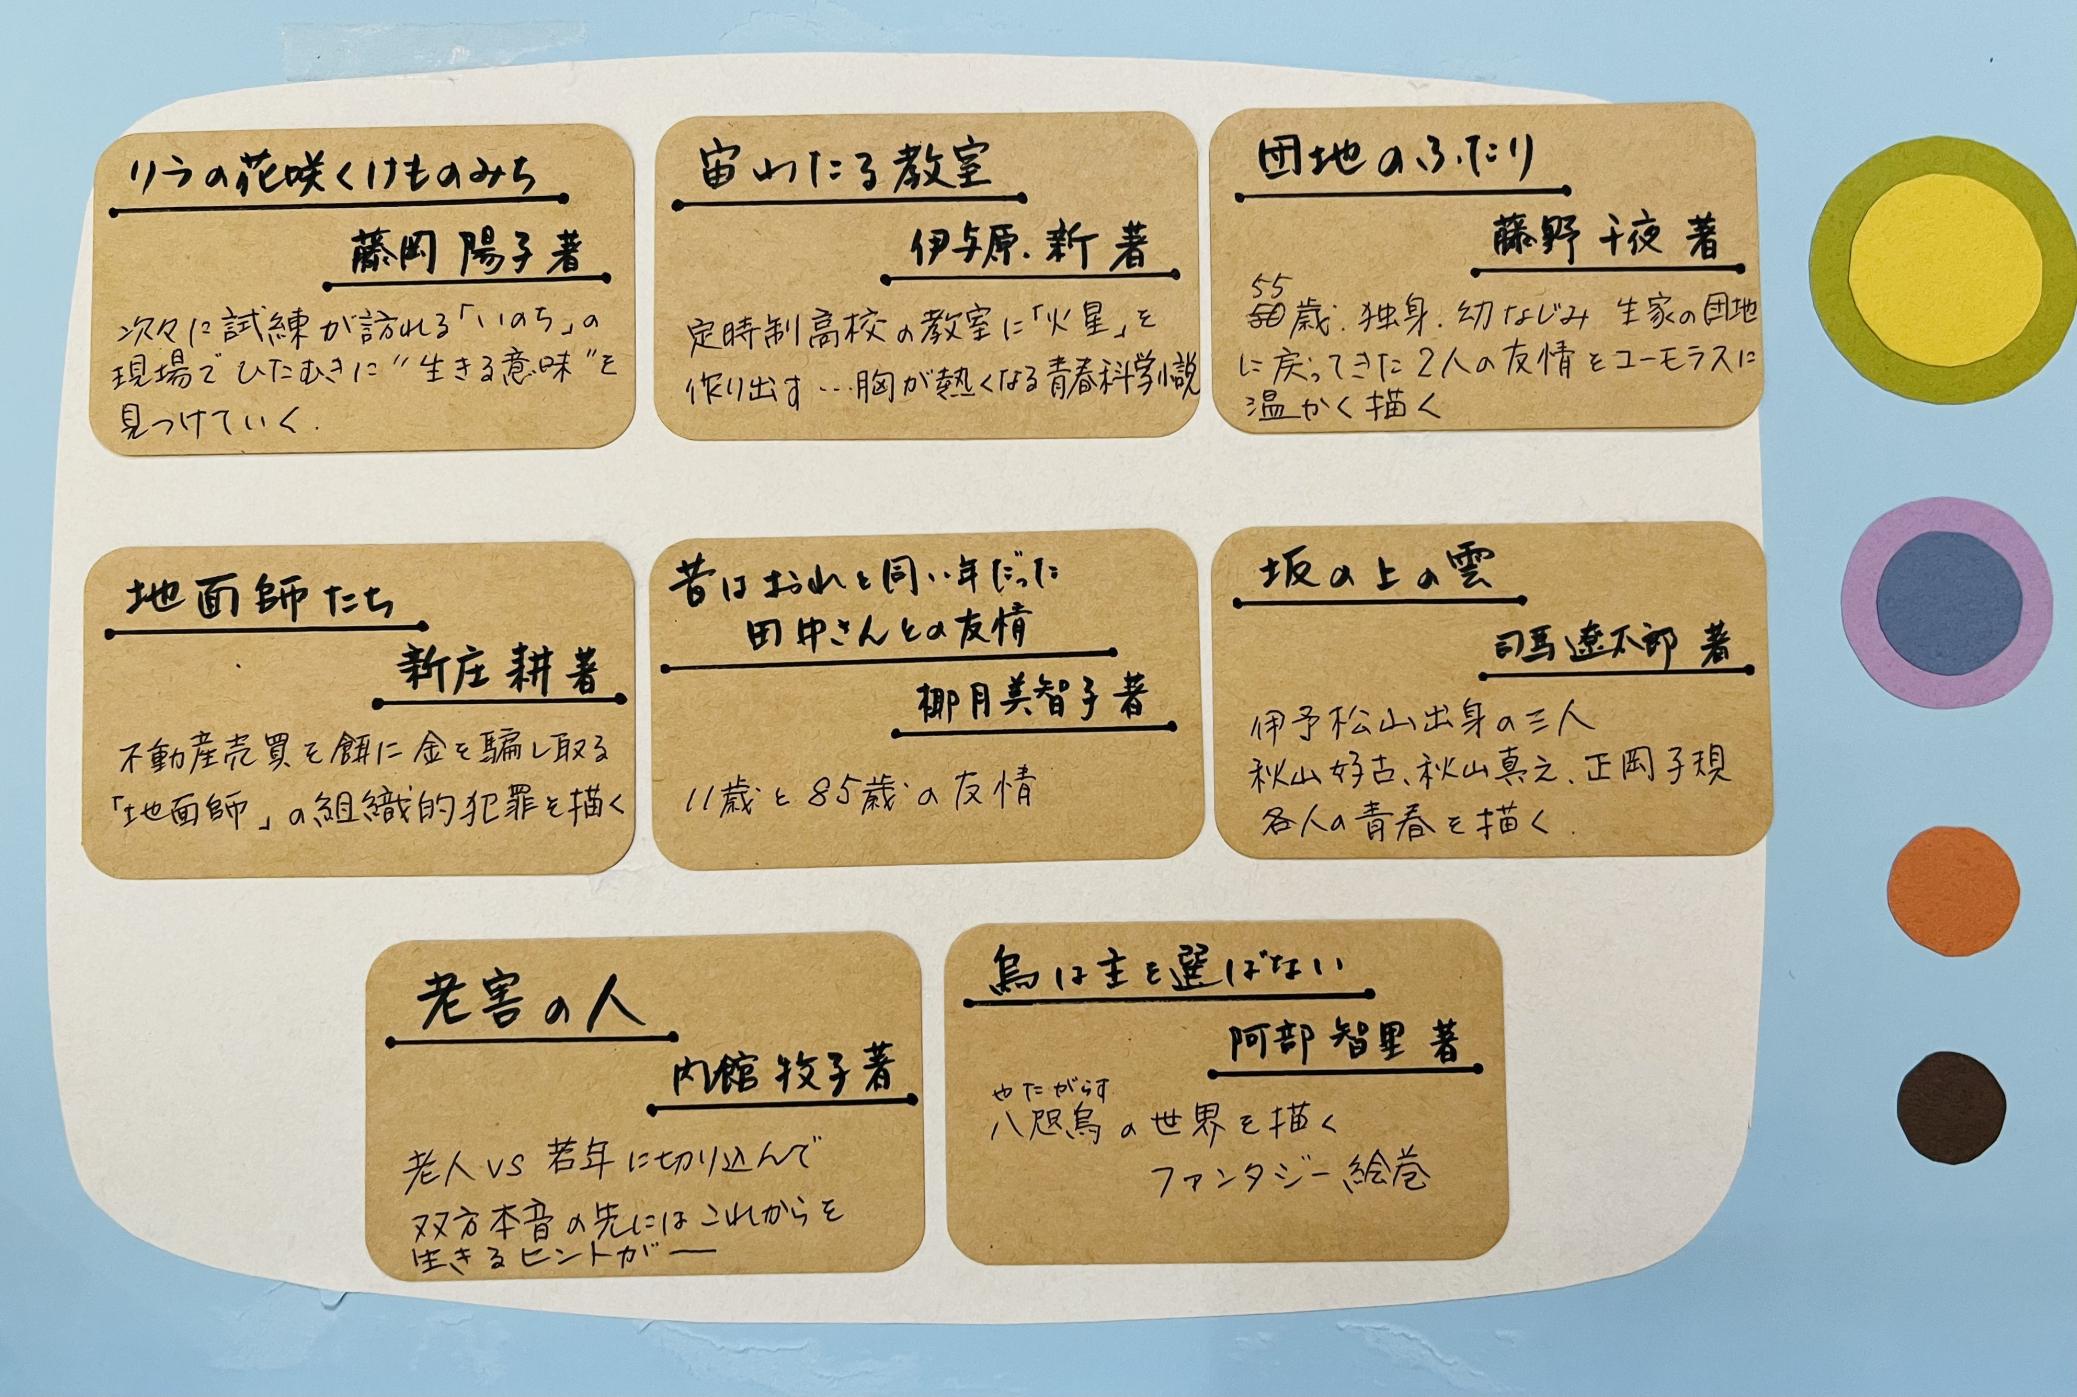 リラの花咲くけものみち
藤岡 陽子 著
次々に試練が訪れる「いのち」の
現場でひたむきに“生きる意味”を
見つけていく.
宙わたる教室
伊与原.新 著
定時制高校の教室に「火星」を
作り出す…胸が熱くなる青春科学小説
団地のふたり
藤野 千夜 著
55
50歳.独身.幼なじみ 生家の団地
に戻ってきた2人の友情をユーモラスに
温かく描く
地面師たち
新庄 耕 著
不動産売買を餌に金を騙し取る
「地面師」の組織的犯罪を描く
昔はおれと同い年だった
田中さんとの友情
椰月美智子 著
11歳と85歳の友情
坂の上の雲
司馬遼太郎 著
伊予松山出身の三人
秋山好古、秋山真之、正岡子規
各人の青春を描く.
老害の人
内館 牧子 著
老人VS 若年に切り込んで
双方本音の先にはこれからを
生きるヒントが―
烏は主を選ばない
阿部 智里 著
やたがらす
八咫烏の世界を描く
ファンタジー絵巻